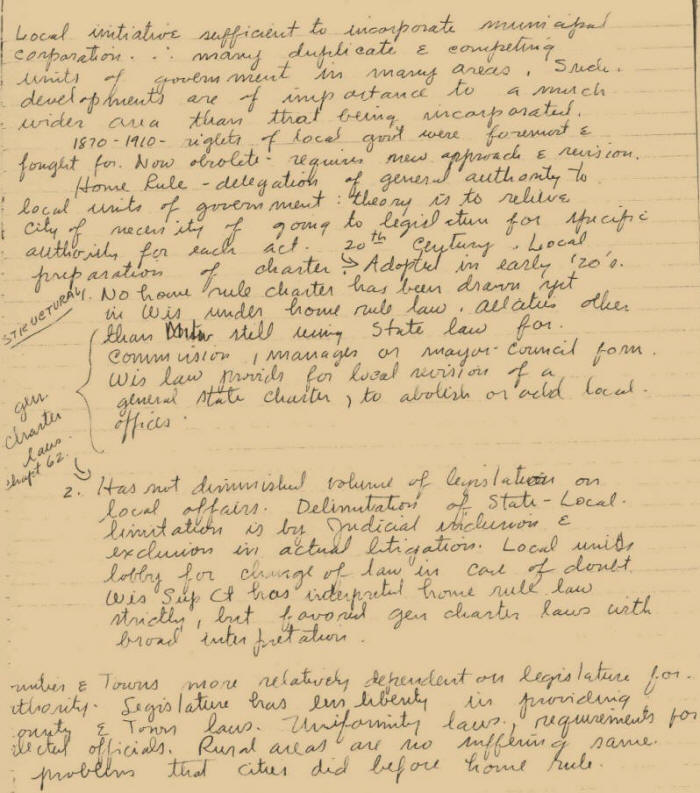 Local initiative sufficient to incorporate municipal
corporation. ∴ many duplicate & competing
units of government in many areas. Such
developments are of importance to a much
wider area than that being incorporated.
1870-1910- rights of local gov't were foremost &
fought for. Now obsolete- requires new approach & revision.
Home Rule - delegation of general authority to
local units of government: theory is to relieve
city of necessity of going to legislature for specific
authority for each act. 20th Century. Local
preparation of charter. Adopted in early '20's.
STRUCTURAL 1. No home rule charter has been drawn yet
in Wis under home rule law. All cities other
than still using State law for
commission, manager or mayor-council form.
Wis law provids for local revision of a
general state charter, to abolish or add local
offices.
gen
charter
laws
chapt 62.
2. Has not diminished volume of legislation on
local affairs. Delimitation of State-Local
limitation is by Judicial inclusion &
exclusion in actual litigation. Local units
lobby for change of law in case of doubt
Wis Sup Ct has interpreted home rule law
strictly, but favored gen charter laws with
broad interpretation.
& Towns more relatively dependent on legislature for
thority. Legislature has liberty in providing
ounty & Town laws. Uniformity laws, requirements for
elected officials. Rural areas are no suffering same
problems that cities did before home rule.